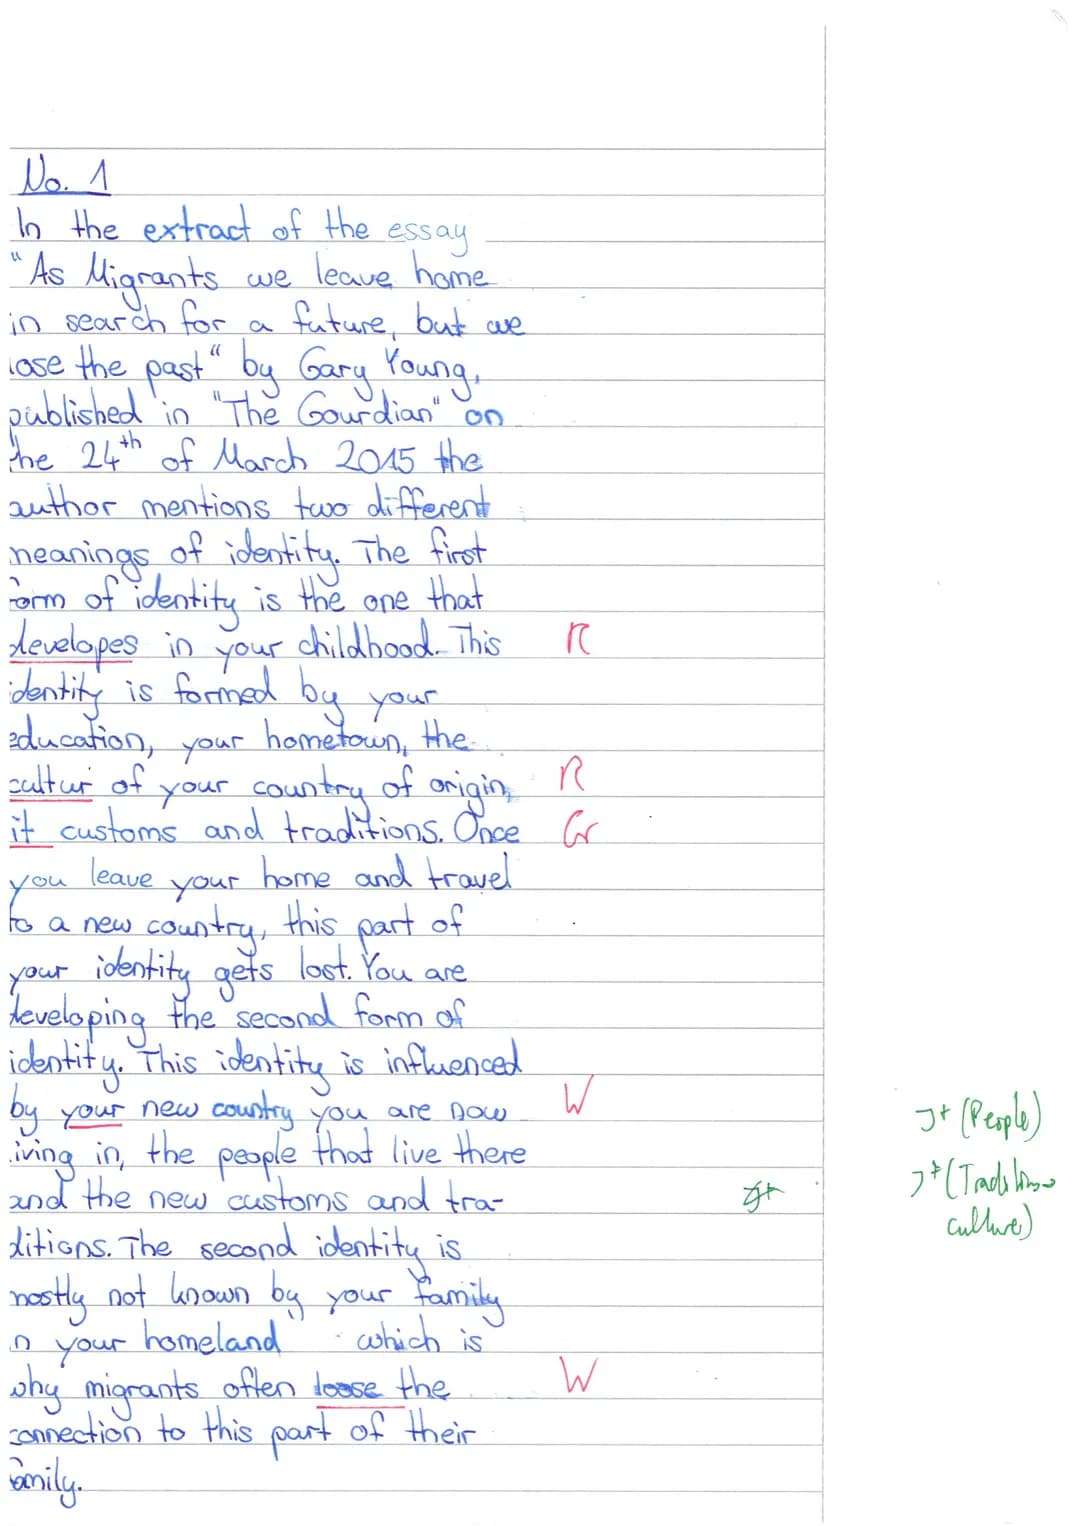 No. 1
In the extract of the essay
"As Migrants we leave home
in search for a future, but we
lose the past" by Gary Young,
published in "The Gourdian" on
the 24th of March 2015 the
author mentions two different
meanings of identity. The first
form of identity is the one that
developes in your childhood. This R
identity is formed by your
education, your hometown, the
cultur of your country of origin, R
it customs and traditions. Once Gr
you leave your home and travel
to a new country, this part of
your identity gets lost. You are
developing the second form of
identity. This identity is influenced
by your new country you are now W
living in, the people that live there J+ (People)
and the new customs and tra- J+ J+ (Traditions
ditions. The second identity is culture)
mostly not known by your family
in your homeland which is
why migrants often loose the W
connection to this part of their
family.